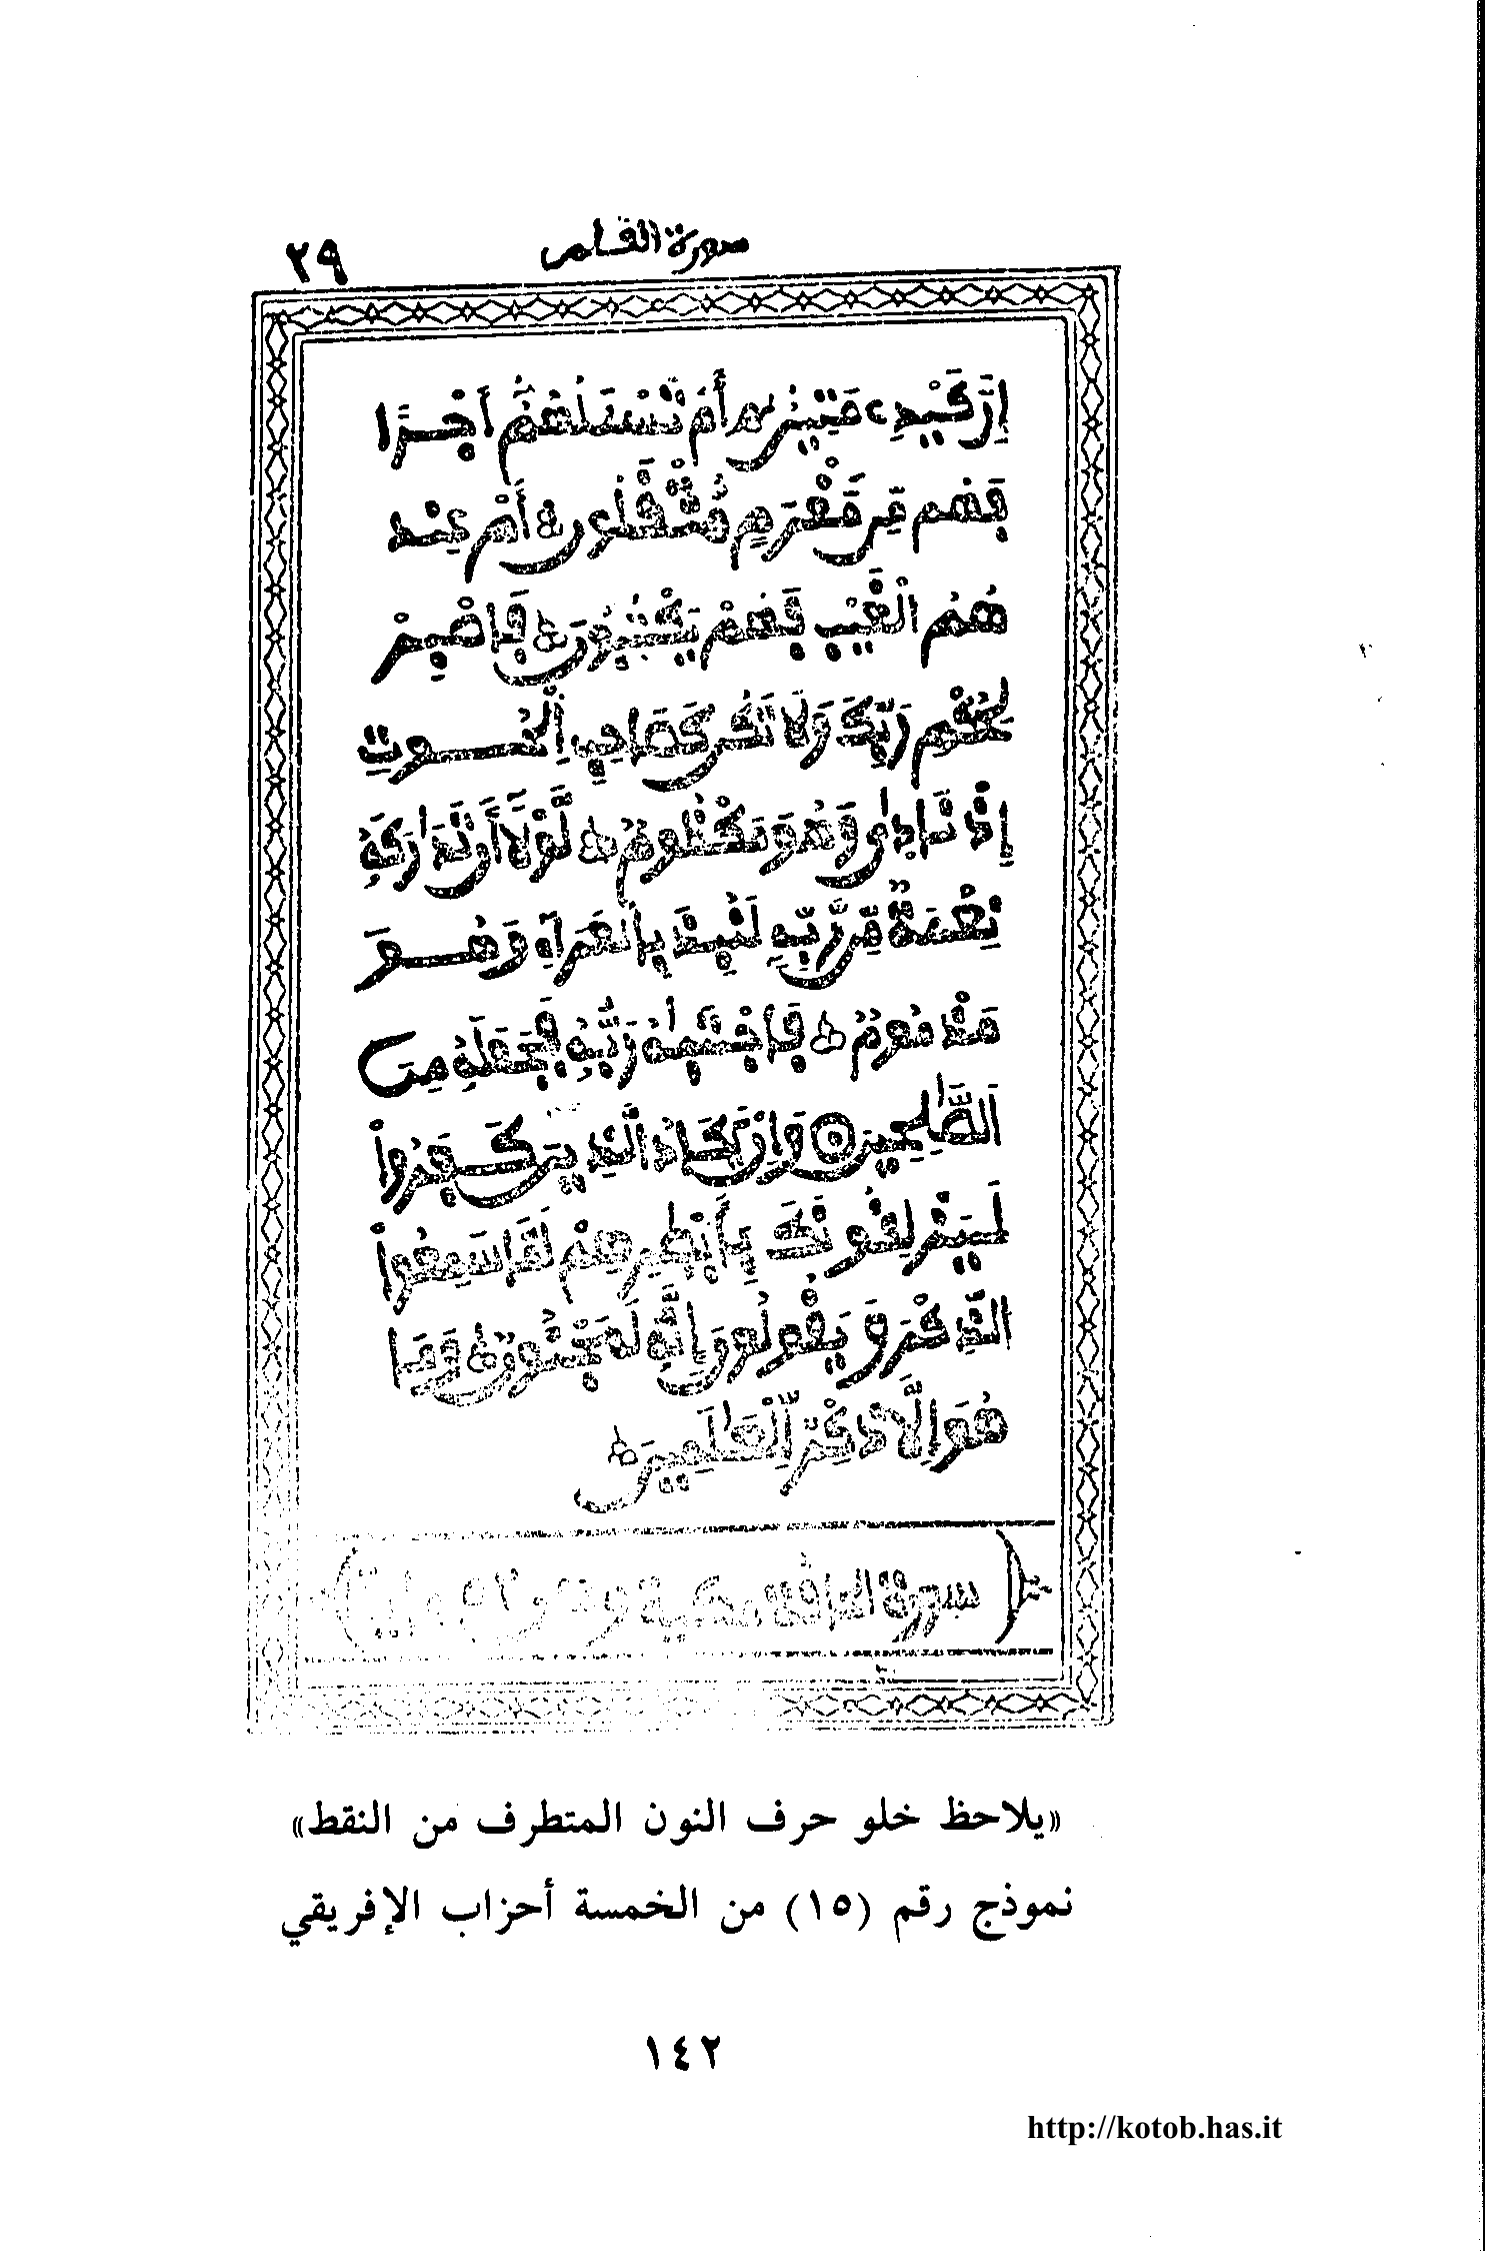 سورة القلم ٢٩
إِنَّ كَيْدِے مَتِينٌ أَمْ تَسْـَٔلُهُمُۥٓ أَجْرًا
فَهُم مِّن مَّغْرَمٍ مُّثْقَلُونَ أَمْ عِنْدَ
هُمُ الْغَيْبُ فَهُمْ يَكْتُبُونَ فَاصْبِرْ
لِحُكْمِ رَبِّكَ وَلَا تَكُن كَصَاحِبِ اِلْحُوتِ
إِذْ نَادٜىٰ وَهُوَ مَكْظُومٌ لَّوْلَآ أَن تَدَٰرَكَهُۥ
نِعْمَةٌ مِّن رَّبِّهِۦ لَنُبِذَ بِالْعَرَآءِ وَهُوَ
مَذْمُومٌ فَاجْتَبَٰهُ رَبُّهُۥ فَجَعَلَهُۥ مِنَ
اَلصَّٰلِحِينَ وَإِن يَكَادُ اُلَّذِينَ كَفَرُواْ
لَيَزْلِقُونَكَ بِأَبْصٰ۪رِهِمْ لَمَّا سَمِعُواْ
الذِّكْرَ وَيَقُولُونَ إِنَّهُۥ لَمَجْنُونٌ وَمَا
هُوَ إِلَّا ذِكْرٌ لِّلْعَٰلَمِينَ
سورة الحاقة مكية
«يلاحظ خلو حرف النون المتطرف من النقط»
نموذج رقم (١٥) من الخمسة أحزاب الإفريقي
١٤٢
http://kotob.has.it